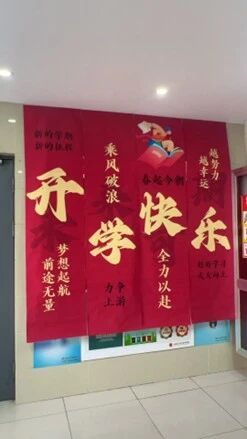 新的学期
新的征程
开
梦想起航
前途无量
乘风破浪
学
力争
上游
春起今朝
快
全力以赴
越努力
越幸运
乐
好好学习
天天向上